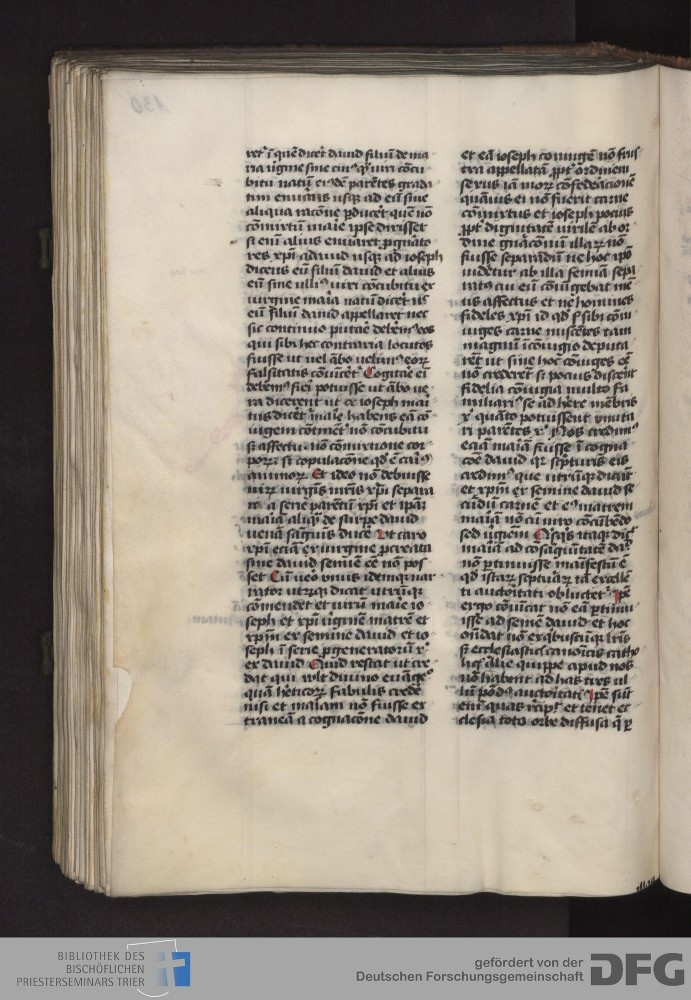 ret̓ ī quē dicēt dauid filiū de ma
ria v̓gine sine cui⁹q̄ʒ uiri cōcu
bitu natū eiꝰdē parētes grada
tim enutriēs usqʒ ad eū sine
aliqua racōne ꝑducēt quē nō
cōmixtū marie ip̄se dixisset
si enī alius enutraret ꝓgnato
res xp̄i a dauid usqʒ ad ioseph
dicens eū filiū dauid et alius
eū sine ulliꝰ uiri cōcubitu ex
uirgine maria natū dicēt nō
eū filiū dauid appellaret nec
sic continuo putare debemꝰ eos
qui sibi hec contraria locutos
fuisse ut uel ābo uel unꝰ eoꝝ
falsitatis cōuīcet̓ Cogitare eī
debemꝰ fieri potuisse ut ābo ue
ra dicerent ut et ioseph mari
tus dicēt̓ marie habens eā cō
iugem cōtinēt̓ nō cōcubitu
sꝫ affectu nō cōmixtione cor
poꝝ sꝫ copulacōne qd̄ ē cariꝰ
animoꝝ Et ideo nō debuisse
uirū uirginis mr̄is xp̄i separa
ri a serie parētū xp̄i et ip̄am
mariā aliq̄ de stirpe dauid
uenā sāguīs ducē̓ Ut caro
xp̄i eciā ex uirgine ꝓcreata
sine dauid semine eē nō pos
set Cū uero unus idemqʒ nar
rator utrūqʒ dicat utrūqʒ
cōmendet et uirū marie io
seph et xp̄i uirginē matrē et
xp̄m ex semine dauid et io
seph ī serie ꝓgeneratorū xp̄i
ex dauid Quid restat ut cre
dat qui vult diuino euāgelio
quā hereticoꝝ fabulis crede
nisi et mariam nō fuisse ex
traneā a cognacōne dauid
et eā ioseph coniugē nō frus
tra appellatā ꝓpt̓ ordinem
sexus et animoꝝ cōfederacionē
quāuis ei nō fuerit carne
cōmixtus et ioseph pocius
ꝓpt̓ dignitatē uirilē ab or
dine gnācōnū illaꝝ nō
fuisse separandū ne hoc ip̄o
uidet̓ur ab illa femīa sepa
ratus cui eū cōiūgebat mē
tis affectus et ne homines
fideles xp̄i id qd̄ sibi cōiu
iuges carne miscētes tam
magnū ī cōiugio deputa
rēt ut sine hoc cōiuges eē
nō crederēt sꝫ pocius discerēt
fidelia cōiugia multo fa
miliariꝰ se adhere mēbris
xp̄i quāto potuissent ymita
ri parētes xp̄i Nos credimꝰ
eciā mariā fuisse ī cogna
cōe dauid qꝛ sc̄pturis eis
credimꝰ que utrūqʒ dicūt
et xp̄m ex semine dauid se
cūdū carnē et eiꝰ matrem
mariā nō cū uiro cōcūbēdo
sed uirginem Quisqʒ itaqʒ dicit
mariā ad cōsāguītatē dauid
nō ꝑtinuisse manifestū ē
qd̄ istaꝝ sc̄ptuaꝝ tā excellē
ti auctoritati obluctet̓ Ip̄e
ergo cōuīcat nō eā ꝑtinu
isse ad semē dauid et hoc
ōndat nō ex quibuscūqʒ libris
sꝫ ecclesiasticis canonicis catho
licis alie quippe apud nos
nō habent ad has res ul
lū pōdꝰ auctoritatis Ip̄e sūt
enī quas recipit et tenet ec
clesia toto orbe diffusa q̄ ꝑ
130
BIBLIOTHEK DES
BISCHÖFLICHEN
PRIESTERSEMINARS TRIER
gefördert von der
Deutschen Forschungsgemeinschaft
DFG